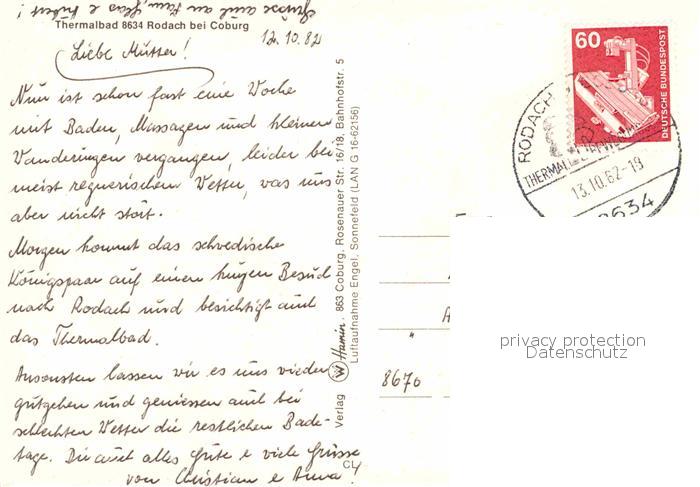 Grüsse auch an
Thermalbad 8634 Rodach bei Coburg
12.10.82
Liebe Mutter!
Nun ist schon fast eine Woche
mit Baden, Massagen und kleinen
Wanderungen vergangen, leider bei
meist regnerischem Wetter, was uns
aber nicht stört.
Morgen kommt das schwedische
Königspaar auf einen kurzen Besuch
nach Rodach und besichtigt auch
das Thermalbad.
Ansonsten lassen wir es uns wieder
gutgehen und geniessen auch bei
schlechtem Wetter die restlichen Bade-
tage. Dir auch alles Gute & viele Grüsse
von Christian & Anna!
CL
Verlag Hamin, 863 Coburg, Rosenauer Str. 16/18, Bahnhofstr. 5
Luftaufnahme Engel, Sonnefeld (LAN G 16-62156)
60
DEUTSCHE BUNDESPOST
RODACH
THERMALB
13.10.82-19
8634
A
"
8670
privacy protection
Datenschutz